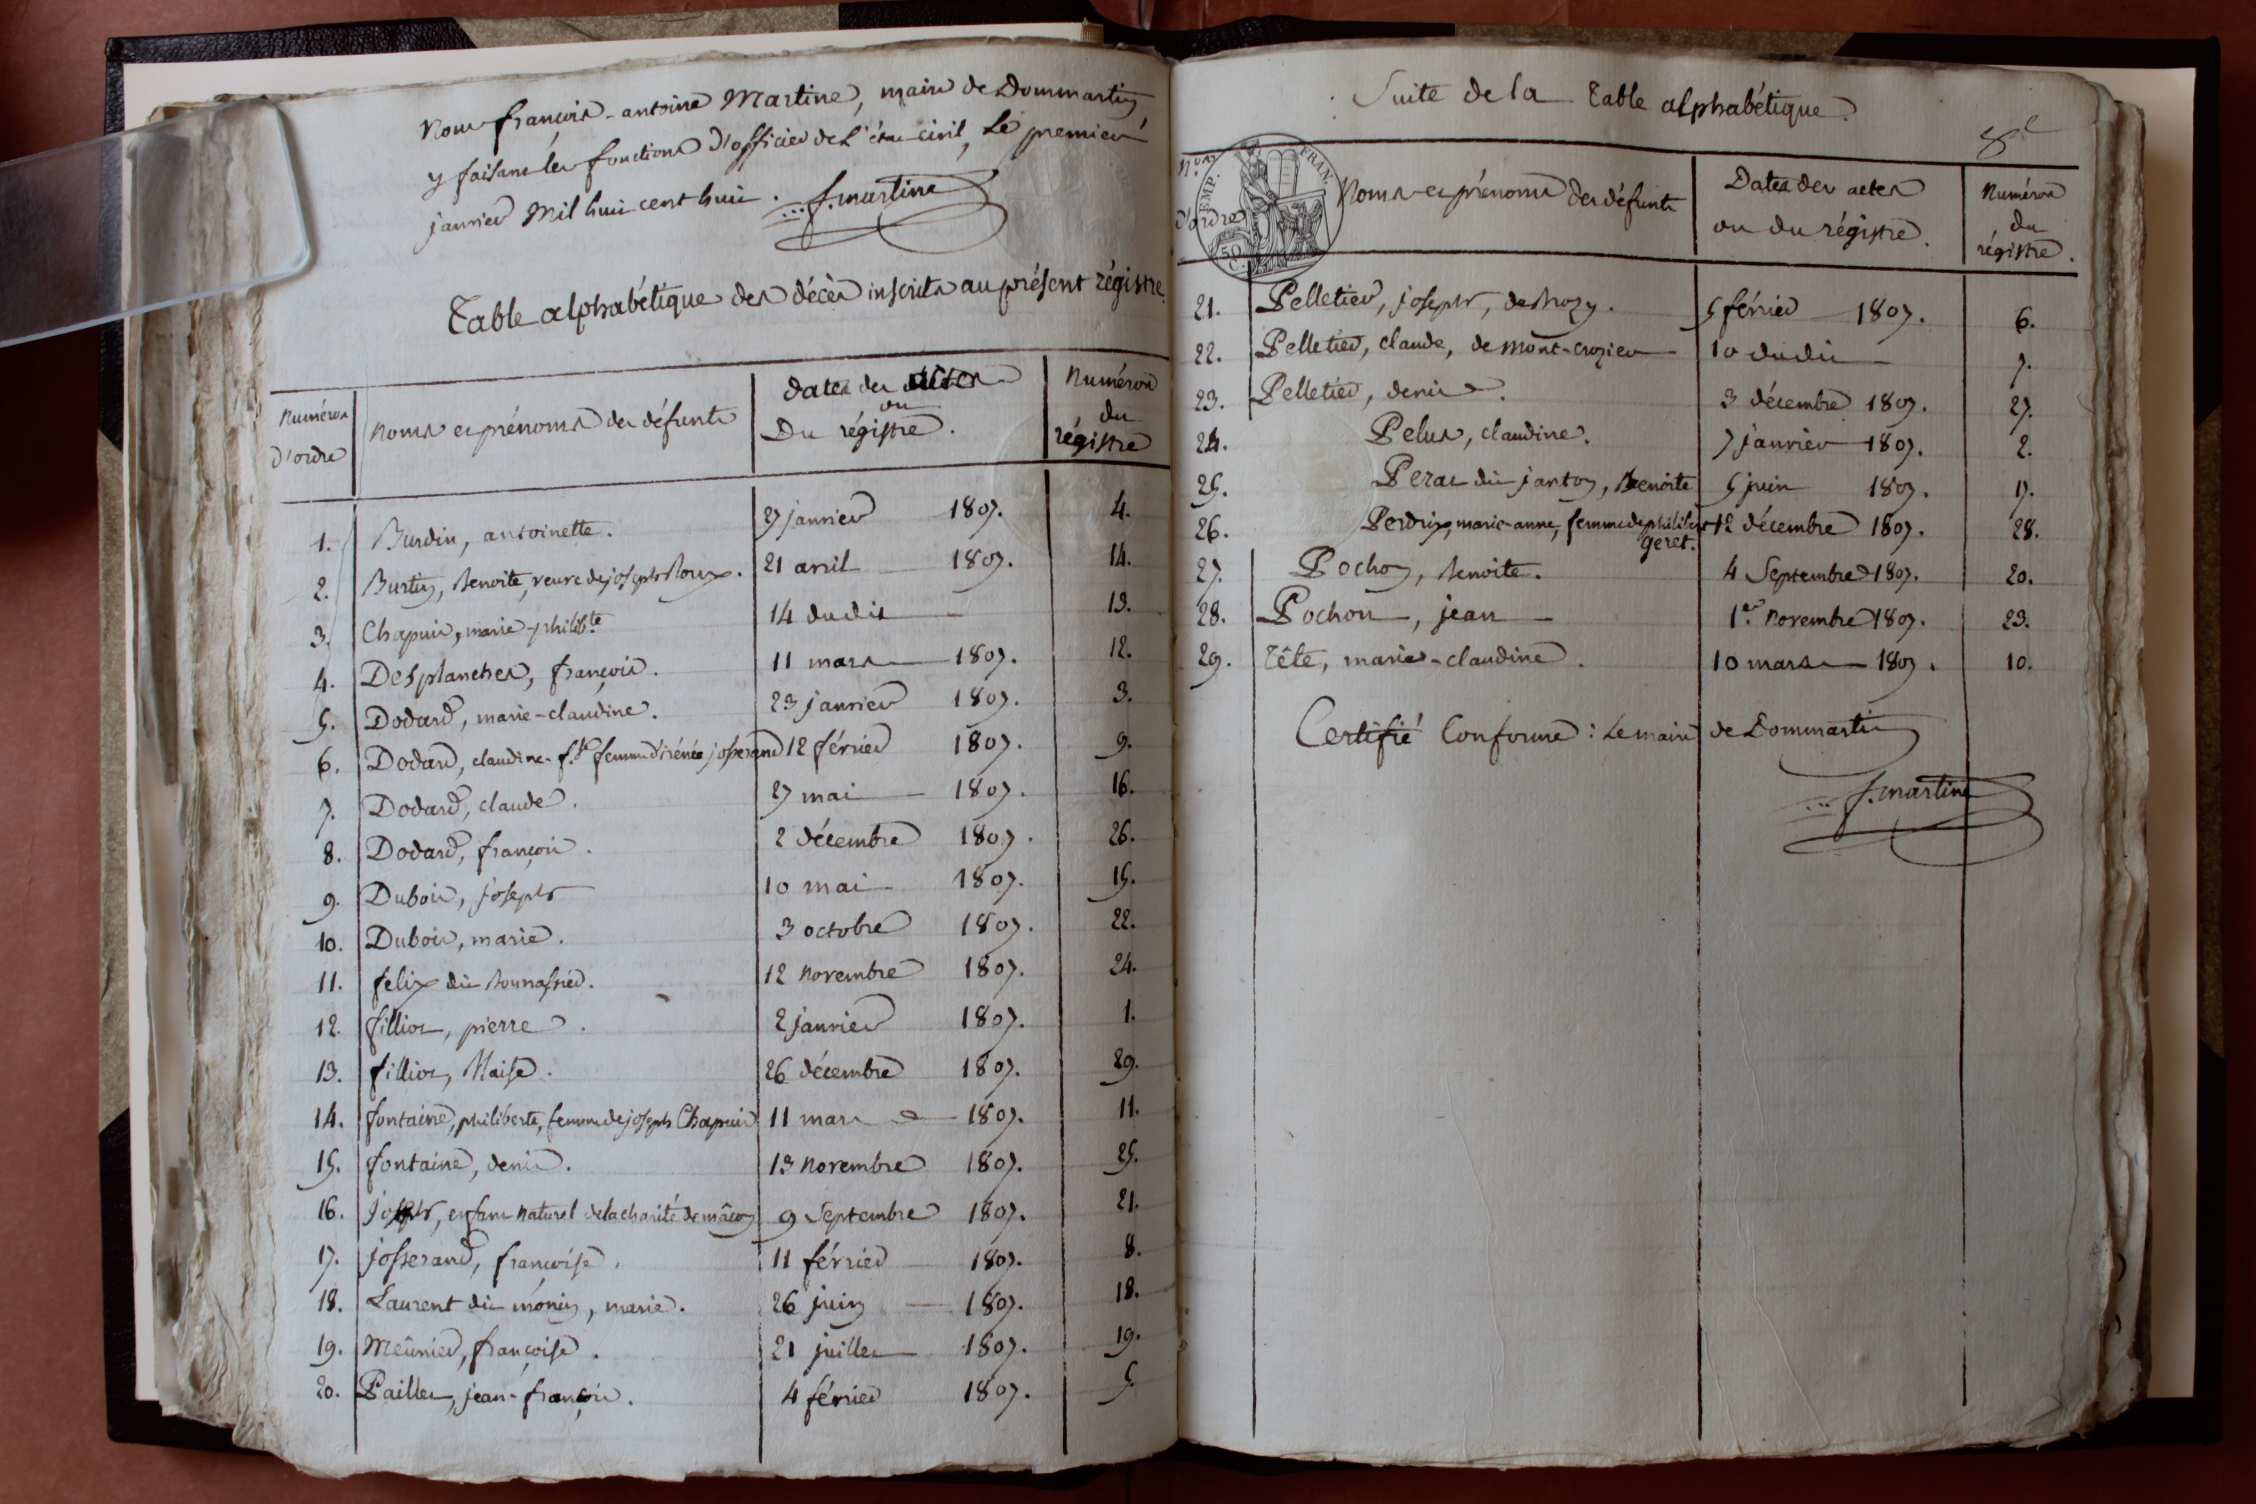 nous françois-antoine Martine, maire de Dommartin,
y faisant les fonctions d'officier de l'état civil, le premier
janvier mil huit cent huit. f. martine
Table alphabétique des décès inscrits au présent régistre.
Numéros d'ordre | noms et prénoms des défunts | dates des actes ou du régistre. | Numéros du régistre
1. Burdin, antoinette. 27 janvier 1807. 4.
2. Burtin, benoite, veuve de joseph Roux. 21 avril 1807. 14.
3. Chapuis, marie-philib.te 14 dudit 13.
4. Desplanches, françois. 11 mars 1807. 12.
5. Dodard, marie-claudine. 23 janvier 1807. 3.
6. Dodard, claudine-f.se femme d'irénée josserand 12 février 1807. 9.
7. Dodard, claude. 27 mai 1807. 16.
8. Dodard, françois. 2 décembre 1807. 26.
9. Dubois, joseph 10 mai 1807. 15.
10. Dubois, marie. 3 octobre 1807. 22.
11. felix dit 12 novembre 1807. 24.
12. filliot, pierre. 2 janvier 1807. 1.
13. filliot, blaise. 26 décembre 1807. 29.
14. fontaine, philiberte, femme de joseph Chapuis 11 mars 1807. 11.
15. fontaine, denis. 13 novembre 1807. 25.
16. joseph, enfant naturel de la charité de mâcon 9 septembre 1807. 21.
17. josserand, françoise. 11 février 1807. 8.
18. Laurent dit monin, marie. 26 juin 1807. 18.
19. Meûnier, françoise. 21 juillet 1807. 19.
20. Paillet, jean-françois. 4 février 1807. 5.
Suite de la Table alphabétique.
N.os d'ordre | Noms et prénoms des défunts | Dates des actes ou du régistre. | Numéros du régistre.
EMP. FRAN.
50 C.
21. Pelletier, joseph, de 5 février 1807. 6.
22. Pelletier, claude, de mont-crozier 10 dudit 7.
23. Pelletier, denis. 3 décembre 1807. 27.
24. Pelus, claudine. 7 janvier 1807. 2.
25. Perat dit janton, benoite 5 juin 1807. 17.
26. Perdrix, marie-anne, femme de philibert geret. 12 décembre 1807. 28.
27. Pochon, benoite. 4 septembre 1807. 20.
28. Pochon, jean 1.er novembre 1807. 23.
29. Tête, marie-claudine. 10 mars 1807. 10.
Certifié Conforme : Le maire de Dommartin
f. martine